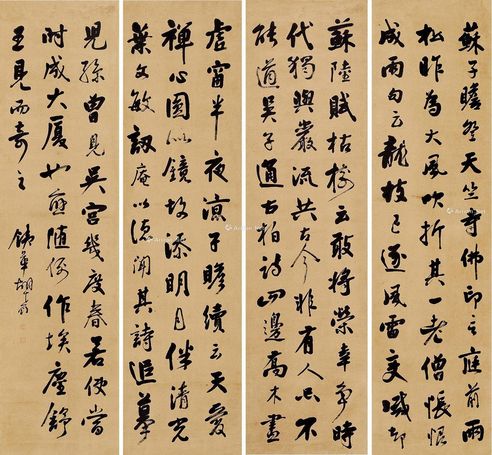 蘇子瞻至天竺寺佛印云庭前兩
松昨為大風吹折其一老僧悵恨
成兩句云龍枝已逐風雷變減却
虛窗半夜涼子瞻續云天愛
禪心圓似鏡故添明月伴清光
葉文敏訒庵以德聞其詩追摹
蘇陸賦枯樹云敢將榮幸爭時
代獨與嚴流共古今非有人不
能道吳子通古柏詩四邊高木盡
兒孫曾見吳宮幾度春若使當
時成大廈也應隨例作埃塵舒
王見而奇之